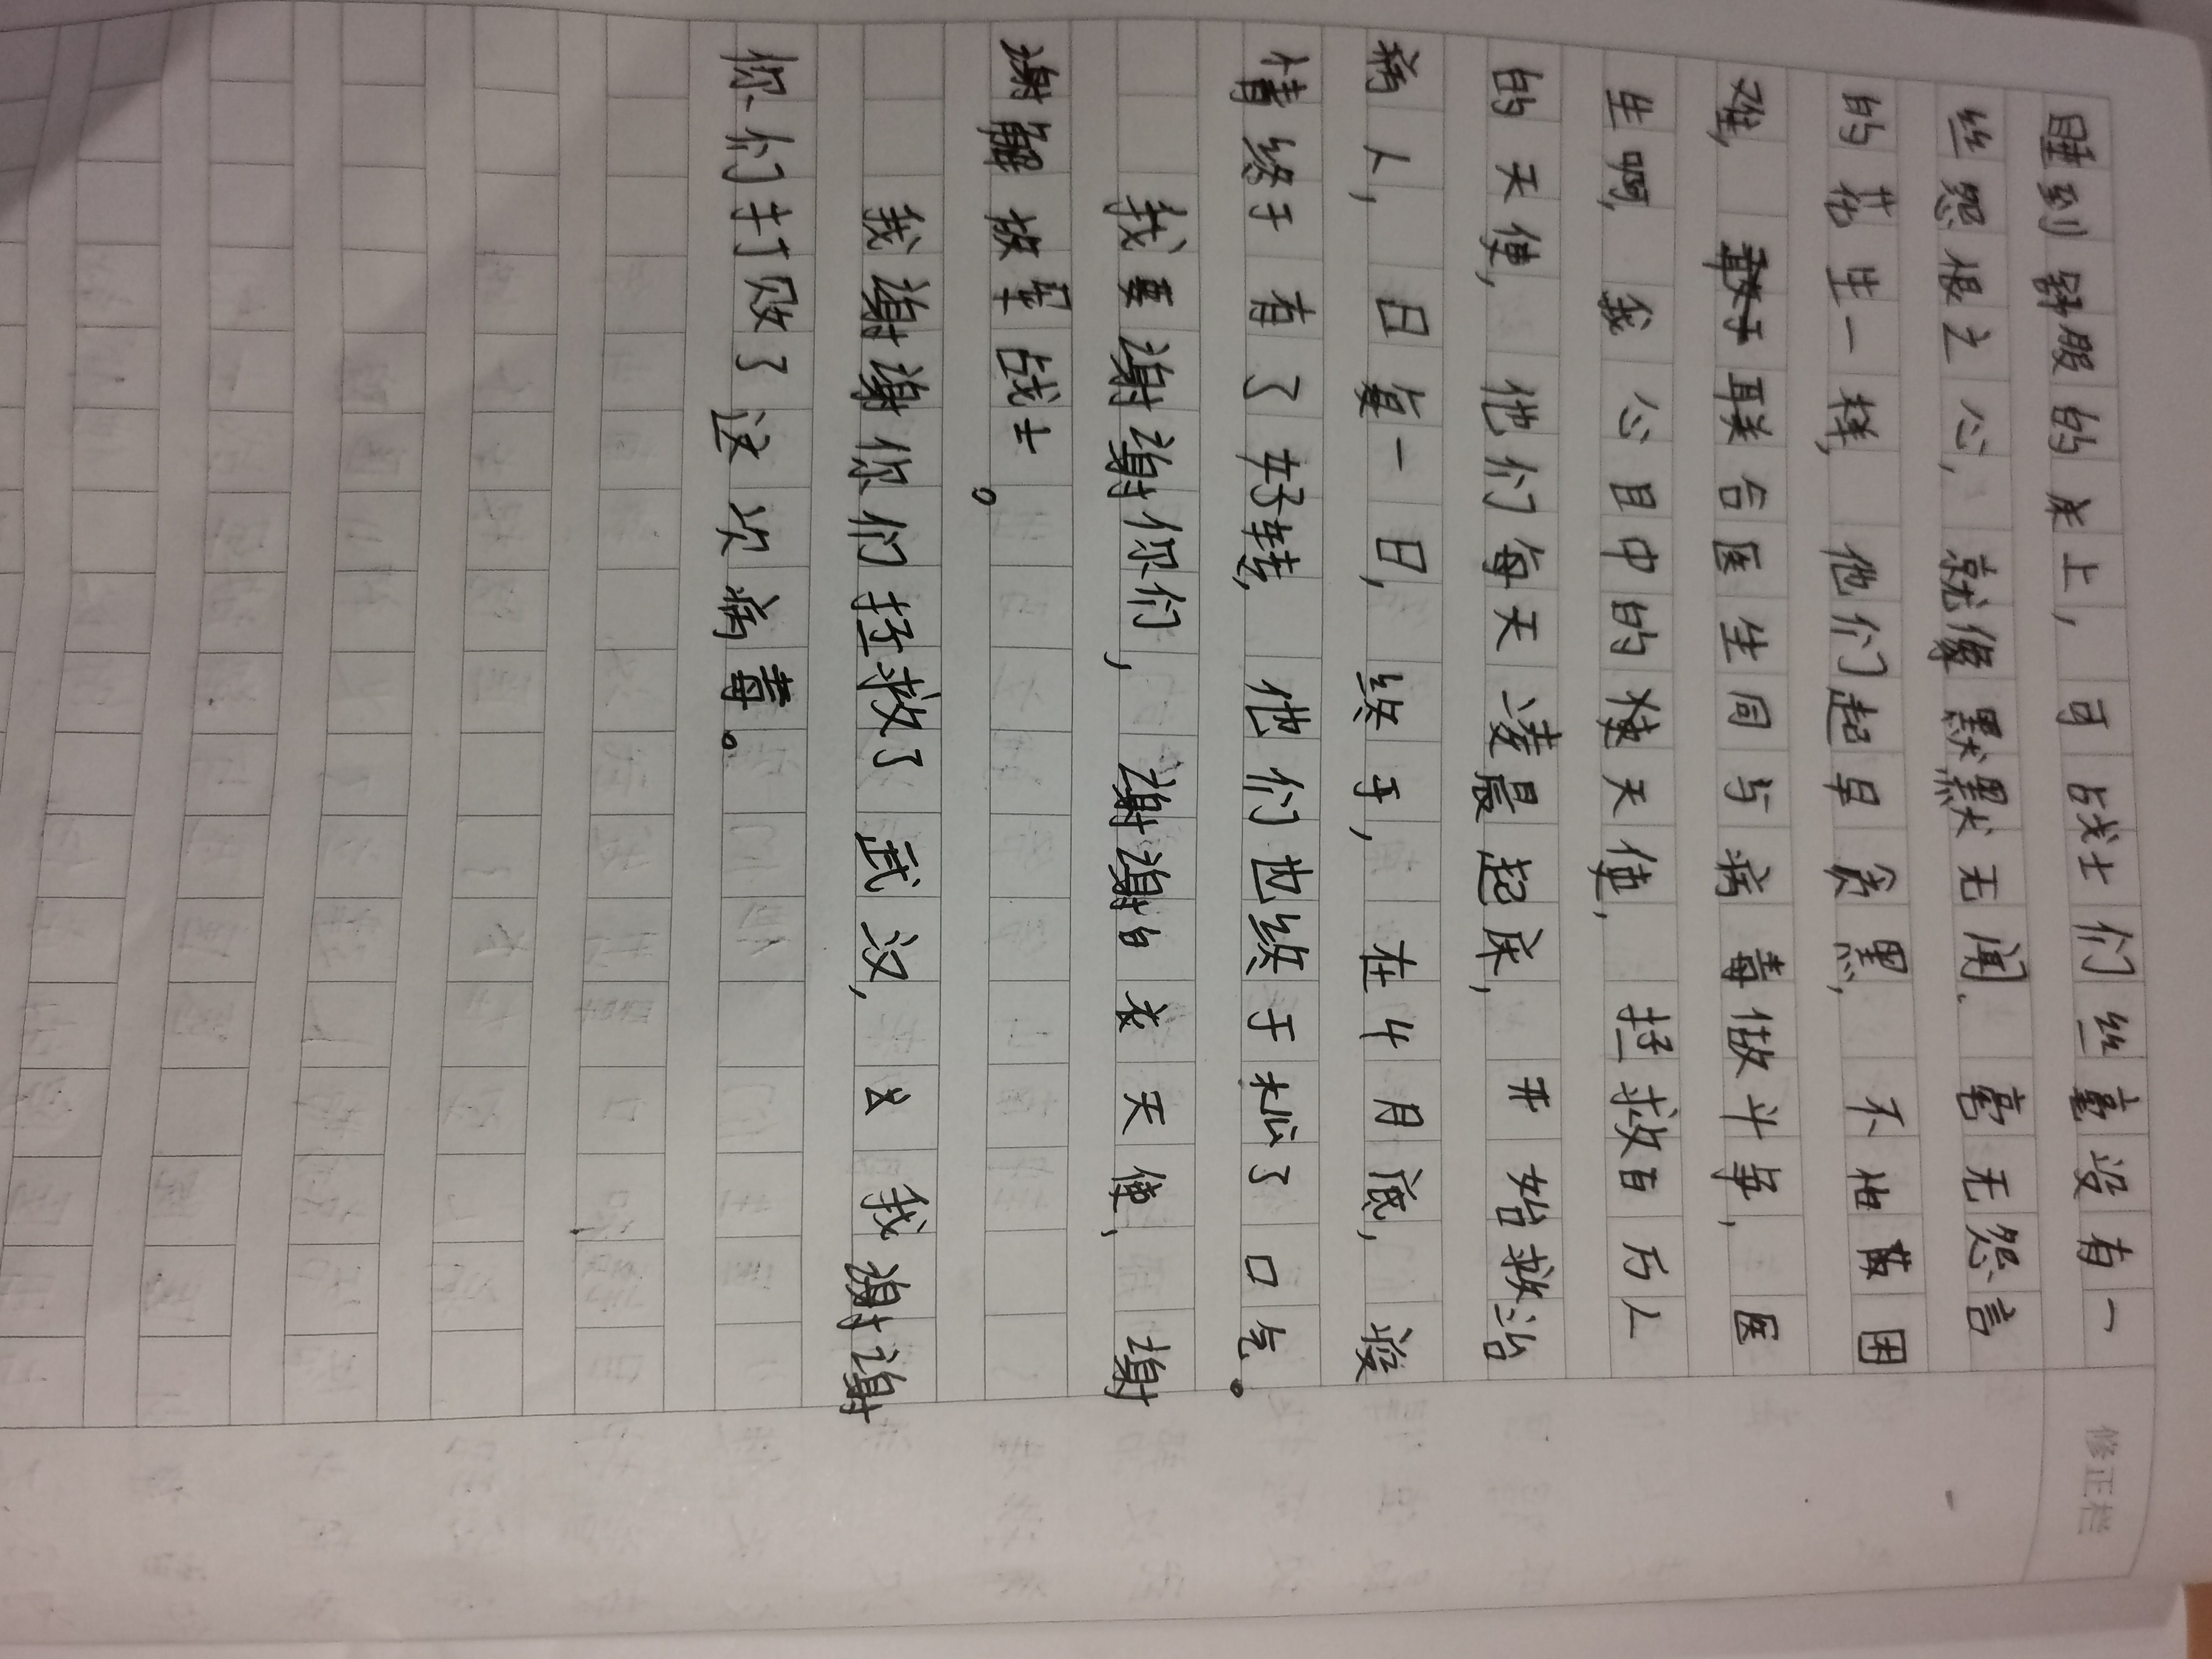 睡到舒服的床上，可战士们丝毫没有一
丝怨恨之心，就像默默无闻、毫无怨言
的花生一样，他们起早贪黑，不怕困
难，联合医生同与病毒做斗争，医
生啊，我心目中的天使，拯救百万人
的天使，他们每天凌晨起床，开始救治
病人，日复一日，终于，在4月底，疫
情终于有了好转，他们也终于松了口气。
我要谢谢你们，谢谢白衣天使，谢
谢解放军战士。
我谢谢你们拯救了武汉，我谢谢
你们打败了这次病毒。
修正栏